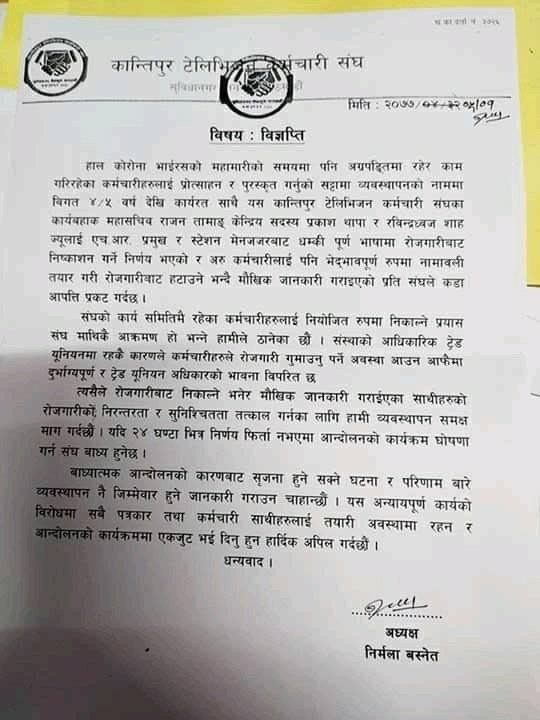 च.का.दर्ता नं. २०२६
कान्तिपुर टेलिभिजन कर्मचारी संघ
सुविधानगर
मिति : २०७७/
विषय : विज्ञप्ति
हाल कोरोना भाईरसको महामारीको समयमा पनि अग्रपङ्तिमा रहेर काम
गरिरहेका कर्मचारीहरुलाई प्रोत्साहन र पुरस्कृत गर्नुको सट्टामा व्यवस्थापनको नाममा
विगत ४/५ वर्ष देखि कार्यरत साथै यस कान्तिपुर टेलिभिजन कर्मचारी संघका
कार्यबाहक महासचिव राजन तामाङ्ग केन्द्रिय सदस्य प्रकाश थापा र रविन्द्रध्वज शाह
ज्यूलाई एच.आर. प्रमुख र स्टेशन मेनजजरबाट धम्की पूर्ण भाषामा रोजगारीबाट
निष्काशन गर्ने निर्णय भएको र अरु कर्मचारीलाई पनि भेद्भावपूर्ण रुपमा नामावली
तयार गरी रोजगारीबाट हटाउने भन्दै मौखिक जानकारी गराइएको प्रति संघले कडा
आपत्ति प्रकट गर्दछ ।
संघको कार्य समितिमै रहेका कर्मचारीहरुलाई नियोजित रुपमा निकाल्ने प्रयास
संघ माथिकै आक्रमण हो भन्ने हामीले ठानेका छौं । संस्थाको आधिकारिक ट्रेड
यूनियनमा रहकै कारणले कर्मचारीहरुले रोजगारी गुमाउनु पर्ने अवस्था आउन आफैमा
दुर्भाग्यपूर्ण र ट्रेड यूनियन अधिकारको भावना विपरित छ
त्यसैले रोजगारीबाट निकाल्ने भनेर मौखिक जानकारी गराईएका साथीहरुको
रोजगारीको निरन्तरता र सुनिश्चितता तत्काल गर्नका लागि हामी व्यवस्थापन समक्ष
माग गर्दछौं । यदि २४ घण्टा भित्र निर्णय फिर्ता नभएमा आन्दोलनको कार्यक्रम घोषणा
गर्न संघ बाध्य हुनेछ ।
बाध्यात्मक आन्दोलनको कारणबाट सृजना हुने सक्ने घटना र परिणाम बारे
व्यवस्थापन नै जिम्मेवार हुने जानकारी गराउन चाहान्छौं । यस अन्यायपूर्ण कार्यको
विरोधमा सबै पत्रकार तथा कर्मचारी साथीहरुलाई तयारी अवस्थामा रहन र
आन्दोलनको कार्यक्रममा एकजुट भई दिनु हुन हार्दिक अपिल गर्दछौं ।
धन्यवाद ।
अध्यक्ष
निर्मला बस्नेत